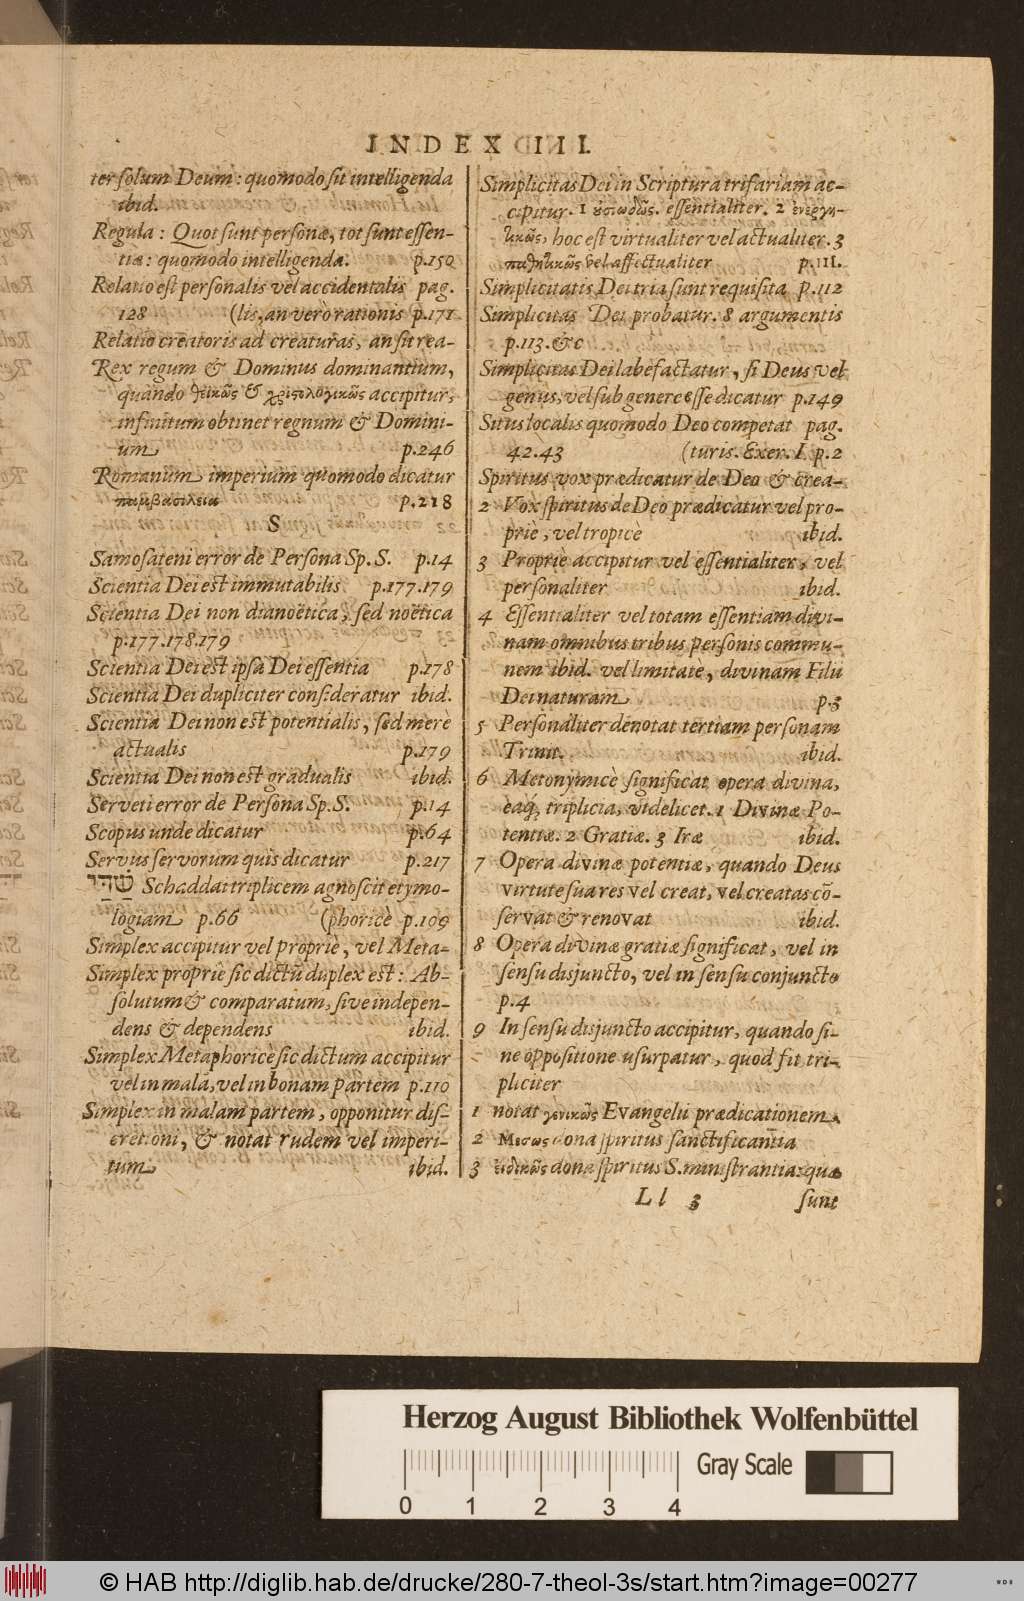 INDEX III.
ter solum Deum: quomodo sit intelligenda
ibid.
Regula: Quot sunt personæ, tot sunt essen-
tiæ: quomodo intelligenda. p.150
Relatio est personalis vel accidentalis pag.
128 (lis, an verò rationis p.171
Relatio creatoris ad creaturas, an sit rea-
Rex regum & Dominus dominantium,
quando θεικῶς & χρισολογικῶς accipitur,
infinitum obtinet regnum & Domini-
um p.246
Romanum imperium quomodo dicatur
παμβασιλεια p.218
S
Samosateni error de Persona Sp. S. p.14
Scientia Dei est immutabilis p.177.179
Scientia Dei non dianoëtica, sed noëtica
p.177.178.179
Scientia Dei est ipsa Dei essentia p.178
Scientia Dei dupliciter consideratur ibid.
Scientia Dei non est potentialis, sed mere
actualis p.179
Scientia Dei non est gradualis ibid.
Serveti error de Persona Sp. S. p.14
Scopus unde dicatur p.64
Servus servorum quis dicatur p.217
שַׁדַּי Schaddai triplicem agnoscit etymo-
logiam p.66 (phoricè p.109
Simplex accipitur vel propriè, vel Meta-
Simplex propriè sic dictũ duplex est: Ab-
solutum & comparatum, sive indepen-
dens & dependens ibid.
Simplex Metaphoricè sic dictum accipitur
vel in malã, vel in bonam partem p.110
Simplex in malam partem, opponitur dis-
cretioni, & notat rudem vel imperi-
tum ibid.
Simplicitas Dei in Scriptura trifariam ac-
cipitur. 1 ὀσιωδῶς. essentialiter. 2 ἐνεργη-
τικῶς, hoc est virtualiter vel actualiter. 3
παθητικῶς vel affectualiter p.111.
Simplicitatis Dei tria sunt requisita p.112
Simplicitas Dei probatur. 8 argumentis
p.113. &c
Simplicitas Dei labefactatur, si Deus vel
genus, vel sub genere esse dicatur p.149
Situs localis quomodo Deo competat pag.
42.43 (turis. Exer. I. p.2
Spiritus vox prædicatur de Deo & crea-
2 Vox spiritus de Deo prædicatur vel pro-
priè, vel tropicè ibid.
3 Propriè accipitur vel essentialiter, vel
personaliter ibid.
4 Essentialiter vel totam essentiam divi-
nam omnibus tribus personis commu-
nem ibid. vel limitate, divinam Filii
Dei naturam p.3
5 Personaliter denotat tertiam personam
Trinit. ibid.
6 Metonymicè significat opera divina,
eaq́; triplicia, videlicet. 1 Divinæ Po-
tentiæ. 2 Gratiæ. 3 Iræ ibid.
7 Opera divinæ potentiæ, quando Deus
virtute sua res vel creat, vel creatas cõ-
servat & renovat ibid.
8 Opera divinæ gratiæ significat, vel in
sensu disjuncto, vel in sensu conjuncto
p.4
9 In sensu disjuncto accipitur, quando si-
ne oppositione usurpatur, quod fit tri-
pliciter
1 notat γενικῶς Evangelii prædicationem
2 Μεσως dona spiritus sanctificantia
3 εἰδικῶς dona spiritus S. ministrantia: quæ
Ll 3 sunt
Herzog August Bibliothek Wolfenbüttel
Gray Scale
0 1 2 3 4
© HAB http://diglib.hab.de/drucke/280-7-theol-3s/start.htm?image=00277